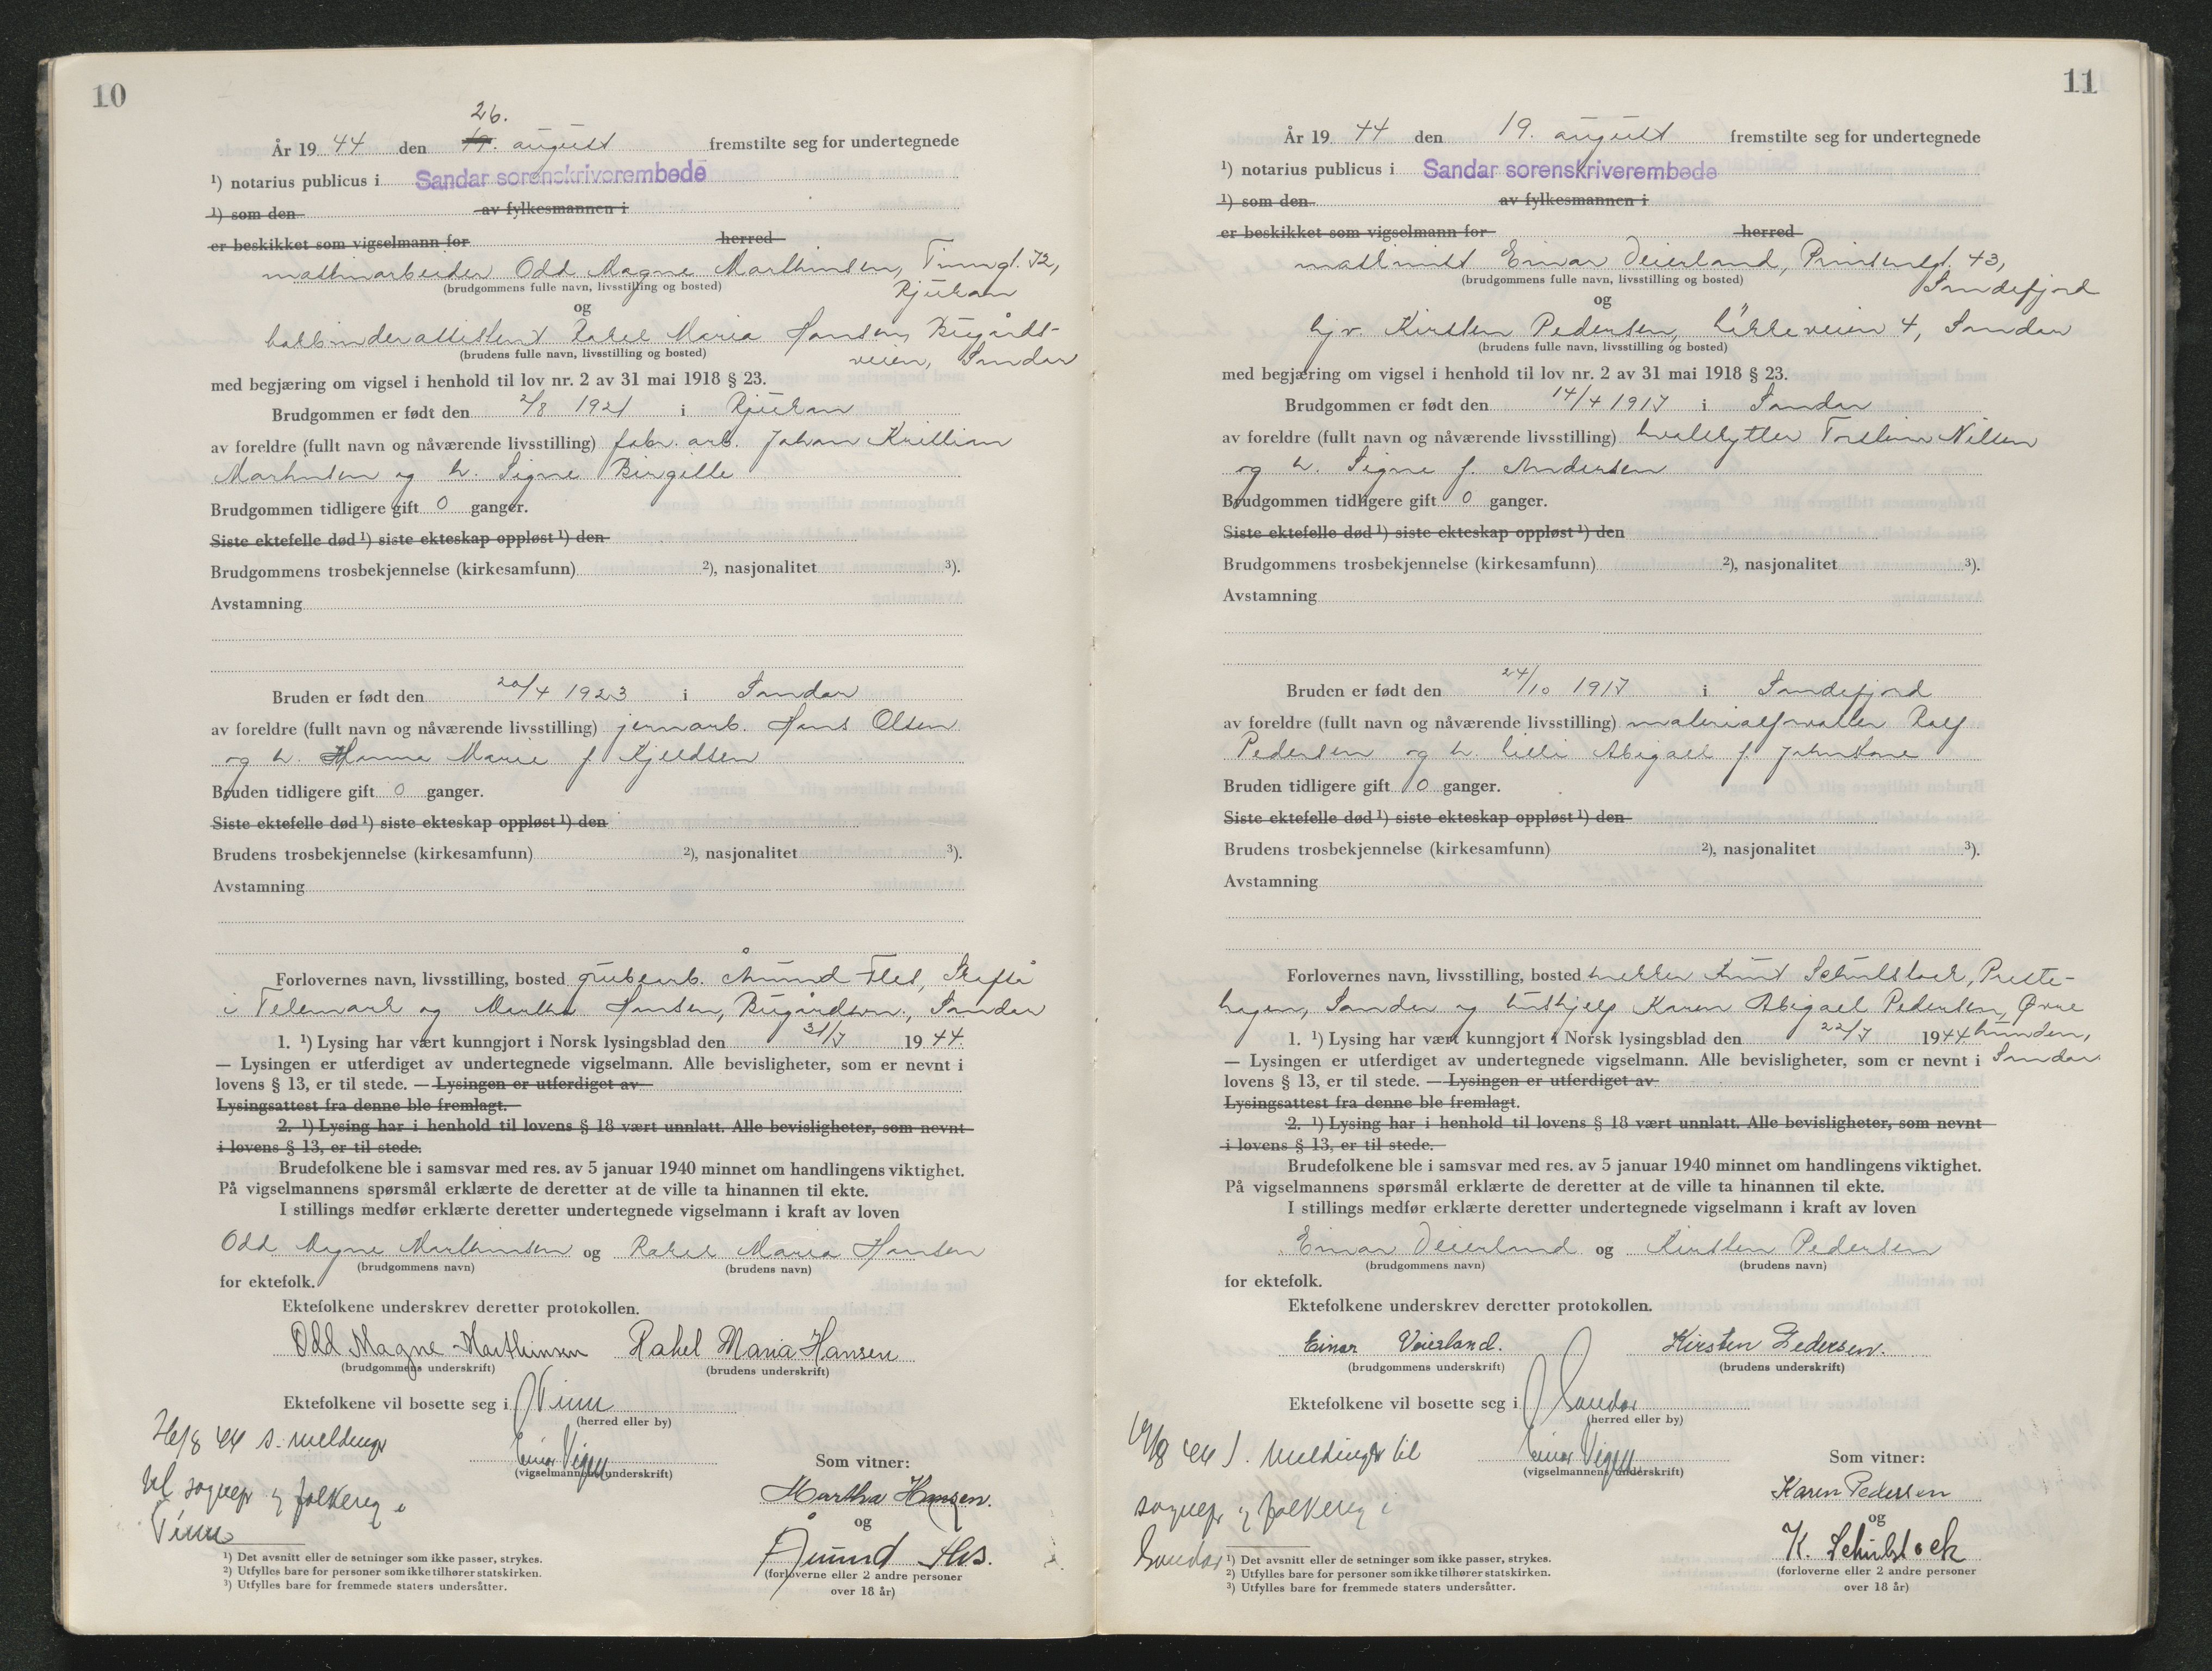 10
26.
År 19 44 den 19. august fremstilte seg for undertegnede
¹) notarius publicus i Sandar sorenskriverembede
¹) som den av fylkesmannen i
er beskikket som vigselmann for herred
maskinarbeider Odd Magne Marthinsen, Tinngt. 72,
(brudgommens fulle navn, livsstilling og bosted) Rjukan
og
Rakel Maria Hansen, Bugårds-
(brudens fulle navn, livsstilling og bosted) veien, Sandar
med begjæring om vigsel i henhold til lov nr. 2 av 31 mai 1918 § 23.
Brudgommen er født den 2/8 1921 i Rjukan
av foreldre (fullt navn og nåværende livsstilling) fabr. arb. Johan Kristian
Marthinsen og h. Signe Birgitte
Brudgommen tidligere gift 0 ganger.
Siste ektefelle død ¹) siste ekteskap oppløst ¹) den
Brudgommens trosbekjennelse (kirkesamfunn) ²), nasjonalitet ³).
Avstamning
Bruden er født den 20/4 1923 i Sandar
av foreldre (fullt navn og nåværende livsstilling) jernarb. Hans Olsen
og h. Hanna Marie f Kjeldsen
Bruden tidligere gift 0 ganger.
Siste ektefelle død ¹) siste ekteskap oppløst ¹) den
Brudens trosbekjennelse (kirkesamfunn) ²), nasjonalitet ³).
Avstamning
Forlovernes navn, livsstilling, bosted grubearb. Åmund Flås, Skafså
i Telemark og Martha Hansen, Bugårdsvn., Sandar
1. ¹) Lysing har vært kunngjort i Norsk lysingsblad den 31/7 19 44.
— Lysingen er utferdiget av undertegnede vigselmann. Alle bevisligheter, som er nevnt i
lovens § 13, er til stede. — Lysingen er utferdiget av
Lysingsattest fra denne ble fremlagt.
2. ¹) Lysing har i henhold til lovens § 18 vært unnlatt. Alle bevisligheter, som nevnt
i lovens § 13, er til stede.
Brudefolkene ble i samsvar med res. av 5 januar 1940 minnet om handlingens viktighet.
På vigselmannens spørsmål erklærte de deretter at de ville ta hinannen til ekte.
I stillings medfør erklærte deretter undertegnede vigselmann i kraft av loven
Odd Magne Marthinsen og Rakel Maria Hansen
(brudgommens navn) (brudens navn)
for ektefolk.
Ektefolkene underskrev deretter protokollen.
Odd Magne Marthinsen Rakel Maria Hansen
(brudgommens underskrift) (brudens underskrift)
Ektefolkene vil bosette seg i Tinn
(herred eller by)
26/8 44 s. meldinger
Einar Vigen
(vigselmannens underskrift) Som vitner:
til sognepr og folkereg i
Martha Hansen.
Tinn
og
Åmund Flås.
(forloverne eller 2 andre personer
over 18 år)
¹) Det avsnitt eller de setninger som ikke passer, strykes.
²) Utfylles bare for personer som ikke tilhører statskirken.
³) Utfylles bare for fremmede staters undersåtter.
11
År 19 44 den 19. august fremstilte seg for undertegnede
¹) notarius publicus i Sandar sorenskriverembede
¹) som den av fylkesmannen i
er beskikket som vigselmann for herred
maskinist Einar Veierland, Prinsensgt. 43,
(brudgommens fulle navn, livsstilling og bosted) Sandefjord
og
hjv. Kirsten Pedersen, Lökkeveien 4, Sandar
(brudens fulle navn, livsstilling og bosted)
med begjæring om vigsel i henhold til lov nr. 2 av 31 mai 1918 § 23.
Brudgommen er født den 14/4 1917 i Sandar
av foreldre (fullt navn og nåværende livsstilling) hvalskytter Torstein Nilsen
og h. Signe f. Andersen
Brudgommen tidligere gift 0 ganger.
Siste ektefelle død ¹) siste ekteskap oppløst ¹) den
Brudgommens trosbekjennelse (kirkesamfunn) ²), nasjonalitet ³).
Avstamning
Bruden er født den 24/10 1917 i Sandefjord
av foreldre (fullt navn og nåværende livsstilling) materialforvalter Ralf
Pedersen og h. Lilli Abigael f. Johnsone
Bruden tidligere gift 0 ganger.
Siste ektefelle død ¹) siste ekteskap oppløst ¹) den
Brudens trosbekjennelse (kirkesamfunn) ²), nasjonalitet ³).
Avstamning
Forlovernes navn, livsstilling, bosted Schulstock, Preste-
hagen, Sandar og hushjelp Karen Abigael Pedersen, Øvre
1. ¹) Lysing har vært kunngjort i Norsk lysingsblad den 22/7 1944
— Lysingen er utferdiget av undertegnede vigselmann. Alle bevisligheter, som er nevnt i Sandar
lovens § 13, er til stede. — Lysingen er utferdiget av
Lysingsattest fra denne ble fremlagt.
2. ¹) Lysing har i henhold til lovens § 18 vært unnlatt. Alle bevisligheter, som nevnt
i lovens § 13, er til stede.
Brudefolkene ble i samsvar med res. av 5 januar 1940 minnet om handlingens viktighet.
På vigselmannens spørsmål erklærte de deretter at de ville ta hinannen til ekte.
I stillings medfør erklærte deretter undertegnede vigselmann i kraft av loven
Einar Veierland og Kirsten Pedersen
(brudgommens navn) (brudens navn)
for ektefolk.
Ektefolkene underskrev deretter protokollen.
Einar Veierland. Kirsten Pedersen.
(brudgommens underskrift) (brudens underskrift)
Ektefolkene vil bosette seg i Sandar
(herred eller by)
19/8 44 s. meldinger til
Einar Vigen
(vigselmannens underskrift) Som vitner:
sognepr og folkereg i
Karen Pedersen
Sandar
og
K. Schulstock
(forloverne eller 2 andre personer
over 18 år)
¹) Det avsnitt eller de setninger som ikke passer, strykes.
²) Utfylles bare for personer som ikke tilhører statskirken.
³) Utfylles bare for fremmede staters undersåtter.